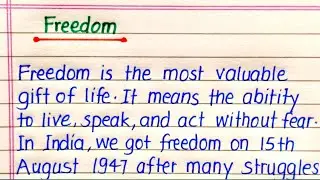 Freedom
Freedom is the most valuable
gift of life. It means the abitity
to live, speak, and act without fear.
In India, we got freedom on 15th
August 1947 after many struggles